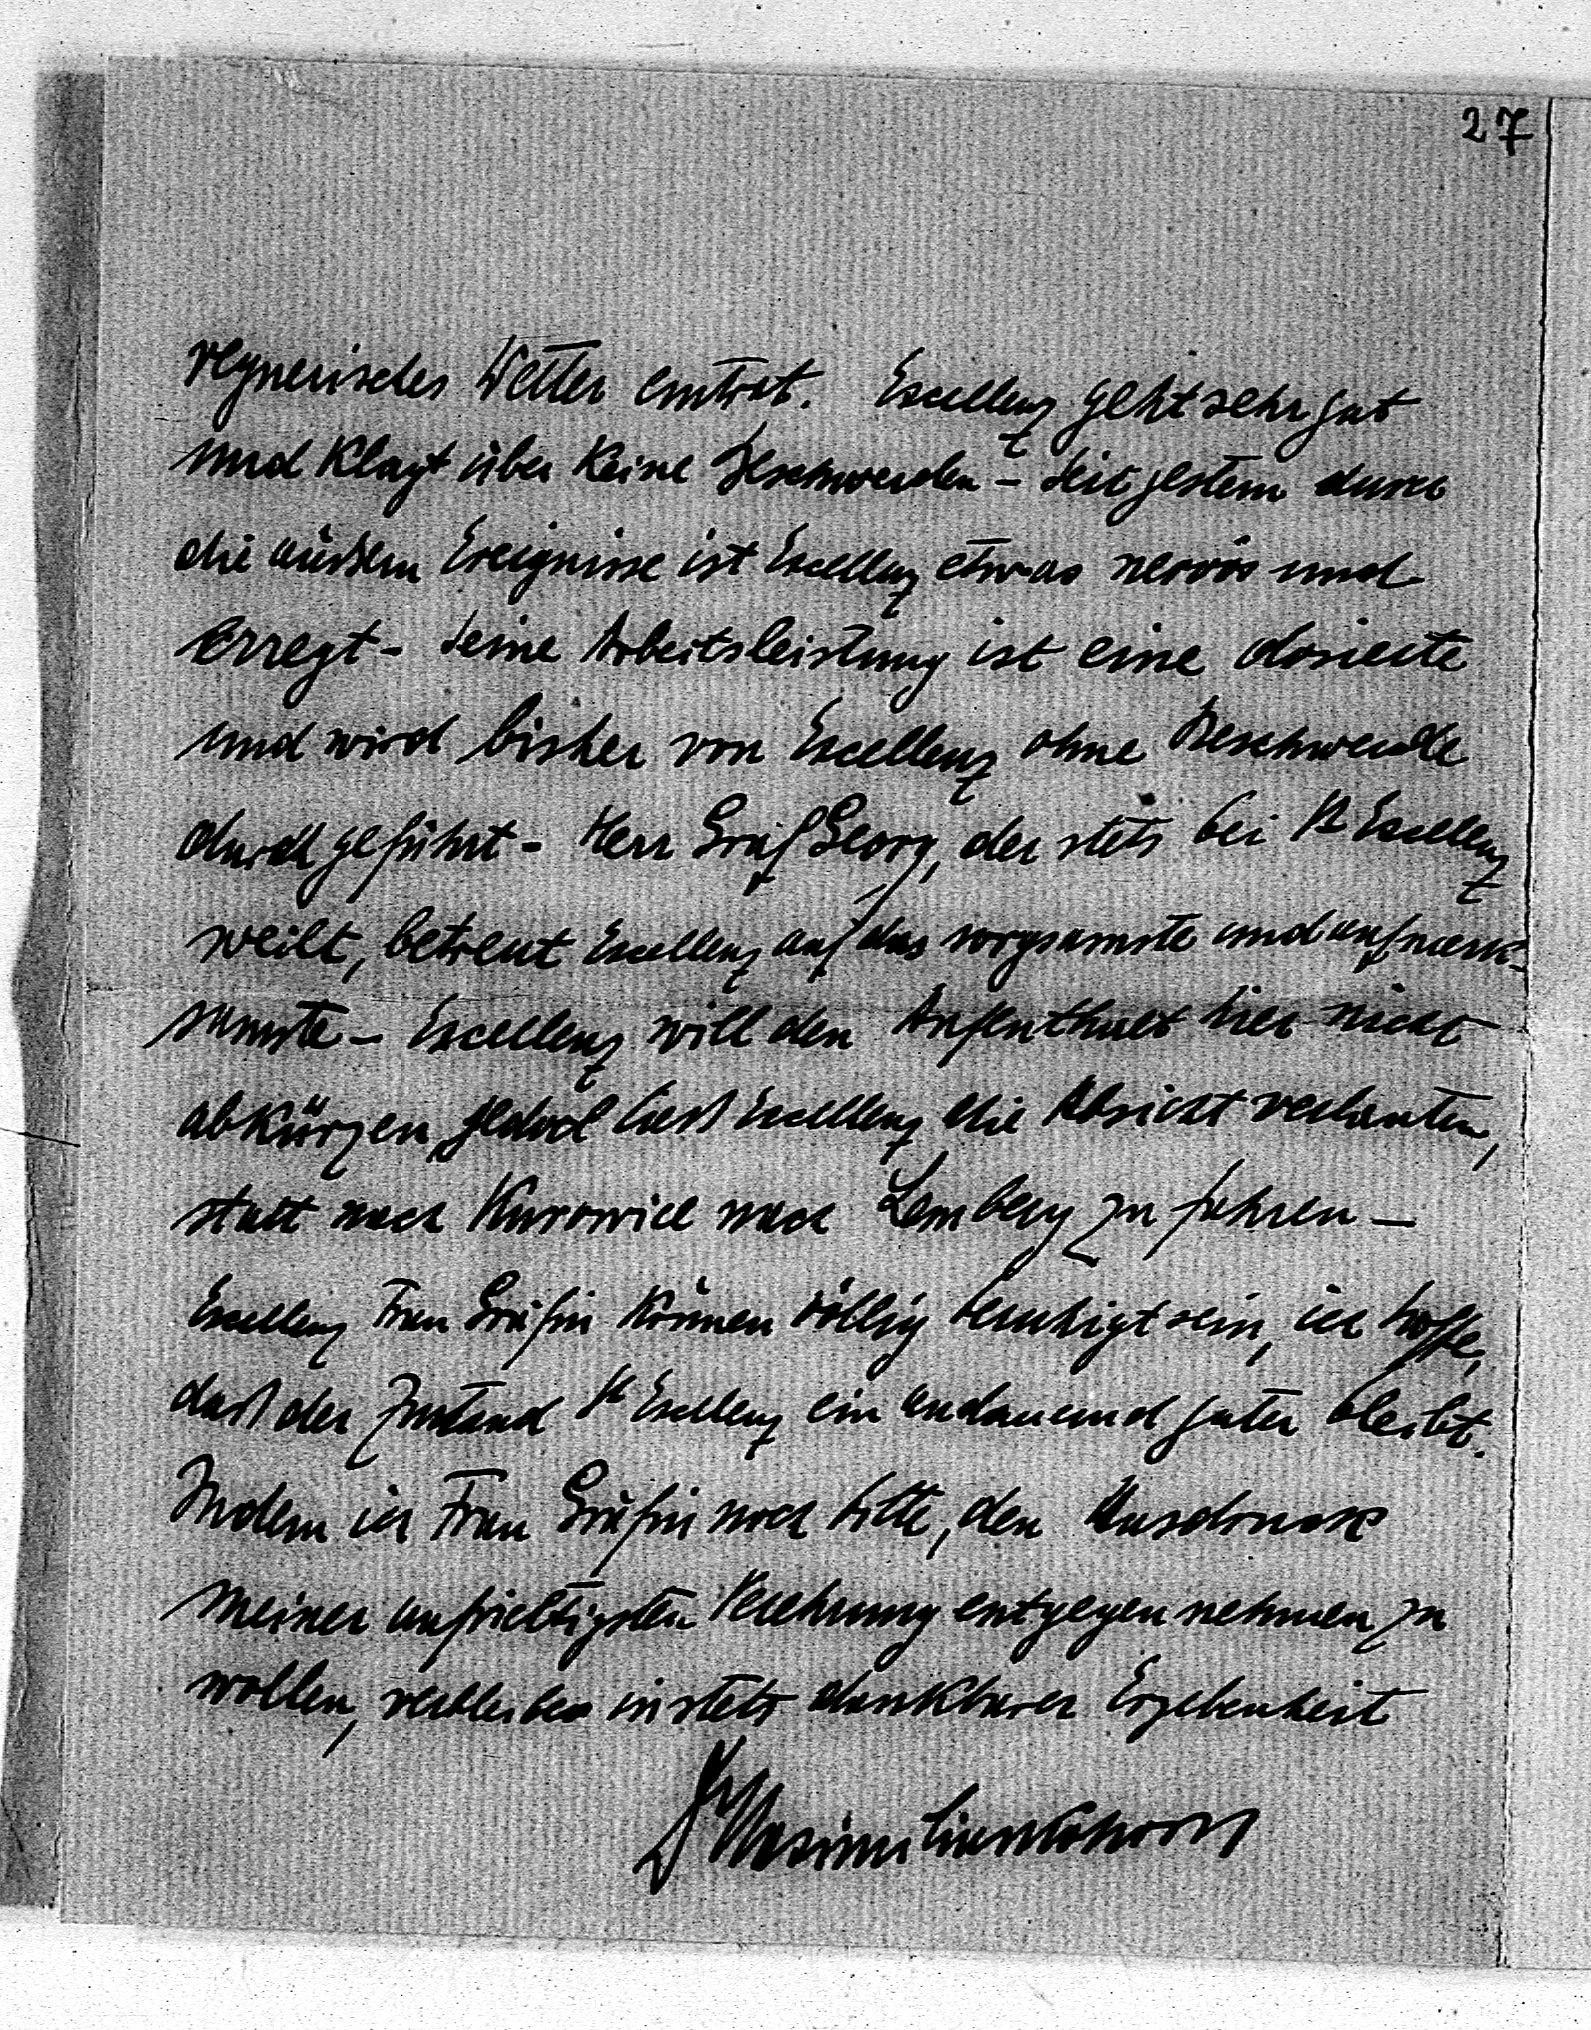 27
regnerisches Wetter eintrat. Excellenz geht sehr gut
und klagt über keine Beschwerden – Seit gestern durch
die äußern Ereignisse ist Excellenz etwas nervös und
erregt – Seine Arbeitsleistung ist eine dosierte
und wird bisher von Excellenz ohne Beschwerde
durchgeführt – Herr Graf Georg, der stets bei Sr Excellenz
weilt, betreut Excellenz auf das sorgsamste und aufmerk-
samste – Excellenz will den Aufenthalt hier nicht
abkürzen, jedoch ließ Excellenz die Absicht verlauten,
statt nach Kurowice nach Lemberg zu fahren –
Excellenz Frau Gräfin können völlig beruhigt sein, ich hoffe,
daß der Zustand Sr Excellenz ein andauernd guter bleibt.
Indem ich Frau Gräfin noch bitte, den Ausdruck
meiner aufrichtigsten Verehrung entgegen nehmen zu
wollen, verbleibe in stets dankbarer Ergebenheit